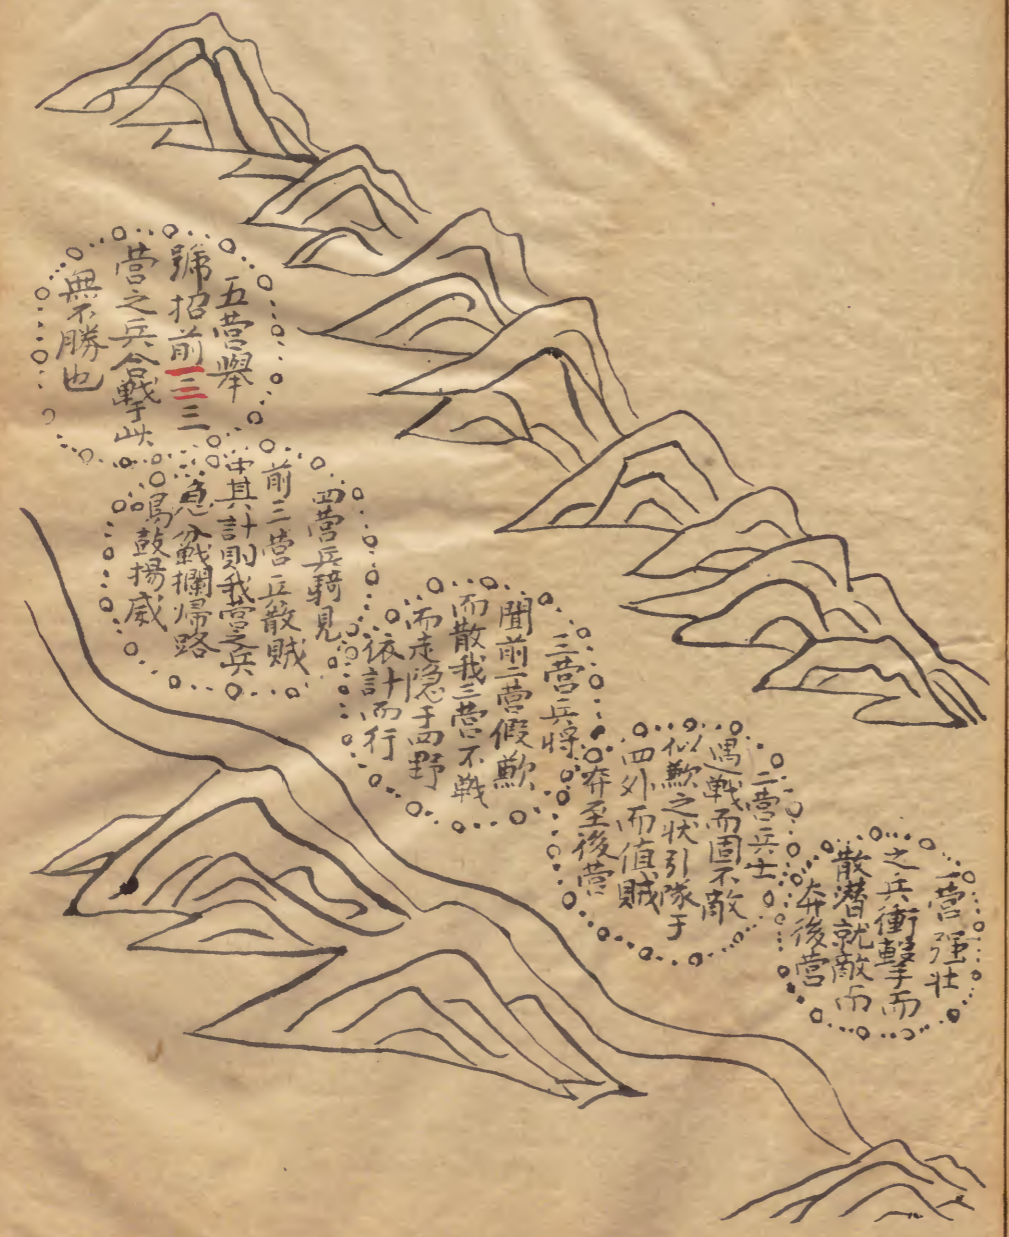 一营强壮
之兵衝擊而
散潜就敵而
奔後营
二营兵士
遇戦而固不敵
似歉之状引隊于
四外而值賊
奔至後营
三营兵将
聞前二营假歉
而散我三营不戦
而走隐于四野
依計而行
四营兵騎見
前三营兵散賊
中其計則我营之兵
急戦攔帰路
鳥鼓揚威
五营舉
號招前一二三
营之兵合戦于此
無不勝也